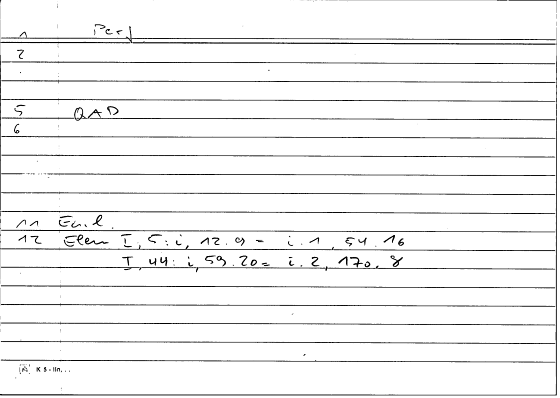 1 Perf
2
5 QAD
6
11 Eucl.
12 Elem I, 5: i, 12.9 = i.1, 54.16
I, 44: i, 59.20 = i.2, 170.8
K 5 - lin...